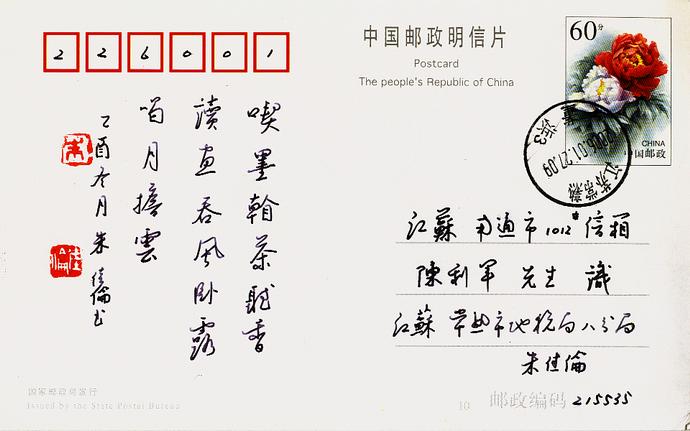 226001
中国邮政明信片
Postcard
The people's Republic of China
60分
CHINA
中国邮政
江苏常熟
2006.01.27.09
喫墨翰茶聽香
讀画吞风卧露
咱月擔雲
乙酉冬月朱佳倫书
江蘇南通市1012#信箱
陳利军先生識
江蘇常熟市地税局八分局
朱佳倫
国家邮政局发行
Issued by the State Postal Bureau
10
邮政编码 215535